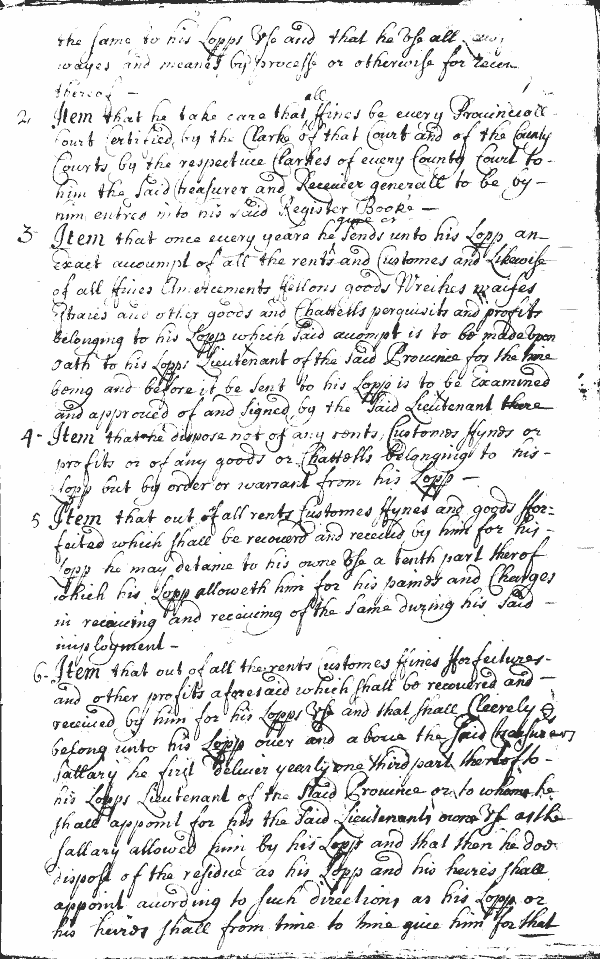 the same to his Lopps Vse and that he Vse all
wayes and meanes by processe or otherwise for recou
thereof —
2 Item that he take care that all ffines be every Provinciall
Court Certified by the Clarke of that Court and of the County
Courts by the respective Clarkes of every County Court to-
him the said Treasurer and Receiver generall to be by-
him entred into his said Register Booke —
3 Item that once every yeare he give or sends unto his Lopp an-
Exact accompt of all the rents and Customes and Likewise
of all ffines Amercements ffellons goods Wreihes waifes
Strares and other goods and Chattells perquisits and profits
belonging to his Lopp which said accompt is to be made upon
Oath to his Lopps Lieutenant of the said Province for the time
being and before it be sent to his Lopp is to be Examined
and approved of and signed by the Said Lieutenant there
4- Item that he dispose not of any rents, Customes ffynes or
profits or of any goods or Chattells belonging to his-
Lopp but by order or warrant from his Lopp —
5 Item that out of all rents Customes ffynes and goods ffor-
feited which shall be recoverd and received by him for his-
Lopp he may detaine to his owne Vse a tenth part therof
which his Lopp alloweth him for his paines and Charges
in receiving and receiving of the same during his said —
imployment —
6- Item that out of all the rents Customes ffines fforfeitures-
and other profits aforesaid which shall be recovered and —
received by him for his Lopps Vse and that shall Cleerely
belong unto his Lopp over and above the said treasurers
Sallary he first deliver yearly one third part thereof to-
his Lopps Lieutenant of the said Province or to whome he
shall appoint for his the said Lieutenants owne Vse as the
Sallary allowed him by his Lopp and that then he doe
dispose of the residue as his Lopp and his heires shall
appoint according to such directions as his Lopp or
his heires shall from time to time give him for that